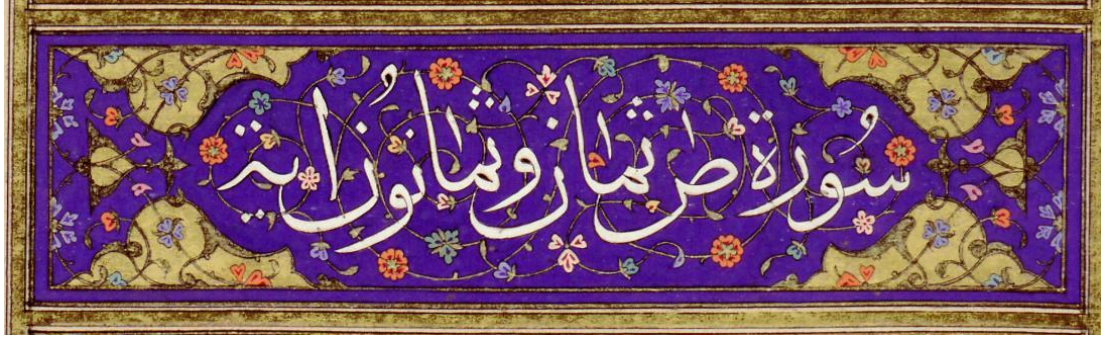 سُورة ص ثمان وثمانون اية